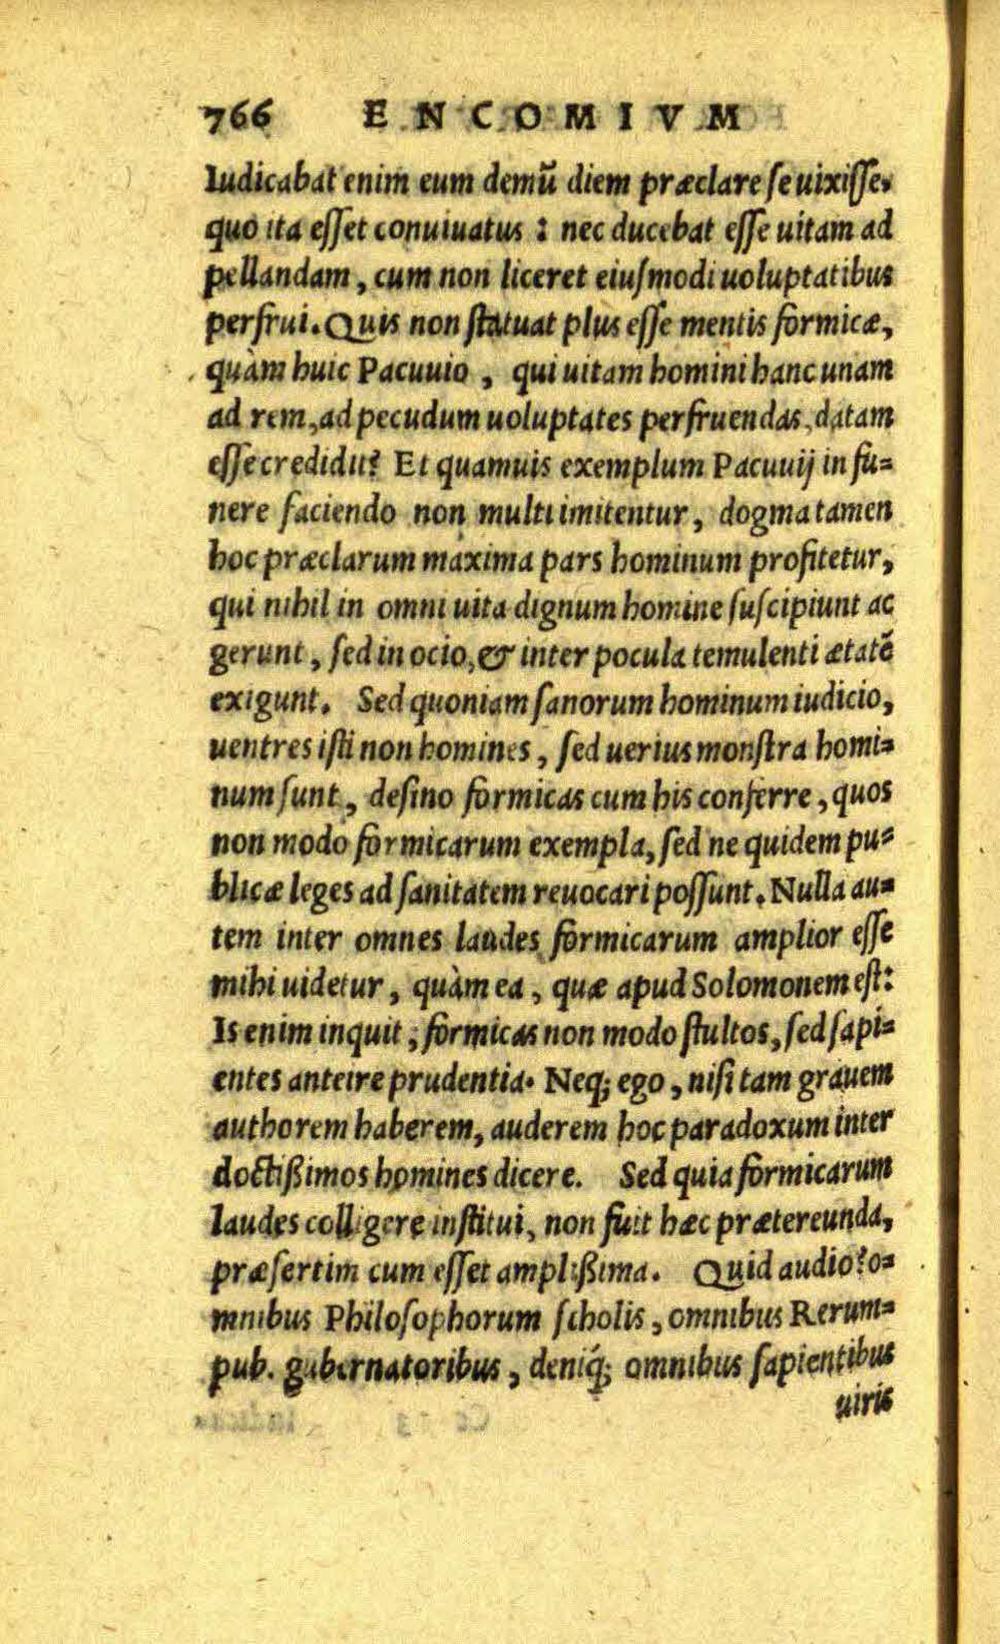 766 ENCOMIVM
Iudicabat enim eum demũ diem præclare ſe uixiſſe,
quo ita eſſet conuiuatus : nec ducebat eſſe uitam ad
pellandam, cum non liceret eiuſmodi uoluptatibus
perfrui. Quis non ſtatuat plus eſſe mentis formicæ,
quàm huic Pacuuio, qui uitam homini hanc unam
ad rem, ad pecudum uoluptates perfruendas, datam
eſſe credidit? Et quamuis exemplum Pacuuij in fu=
nere faciendo non multi imitentur, dogma tamen
hoc præclarum maxima pars hominum profitetur,
qui nihil in omni uita dignum homine ſuſcipiunt ac
gerunt, ſed in ocio, & inter pocula temulenti ætatẽ
exigunt. Sed quoniam ſanorum hominum iudicio,
uentres iſti non homines, ſed uerius monſtra homi=
num ſunt, deſino formicas cum his conferre, quos
non modo formicarum exempla, ſed ne quidem pu=
blicæ leges ad ſanitatem reuocari poſſunt. Nulla au=
tem inter omnes laudes formicarum amplior eſſe
mihi uidetur, quàm ea, quæ apud Solomonem eſt:
Is enim inquit, formicas non modo ſtultos, ſed ſapi=
entes anteire prudentia. Neq; ego, niſi tam grauem
authorem haberem, auderem hoc paradoxum inter
doctißimos homines dicere. Sed quia formicarum
laudes colligere inſtitui, non fuit hæc prætereunda,
præſertim cum eſſet amplißima. Quid audio? o=
mnibus Philoſophorum ſcholis, omnibus Rerum=
pub. gubernatoribus, deniq́; omnibus ſapientibus
uiris